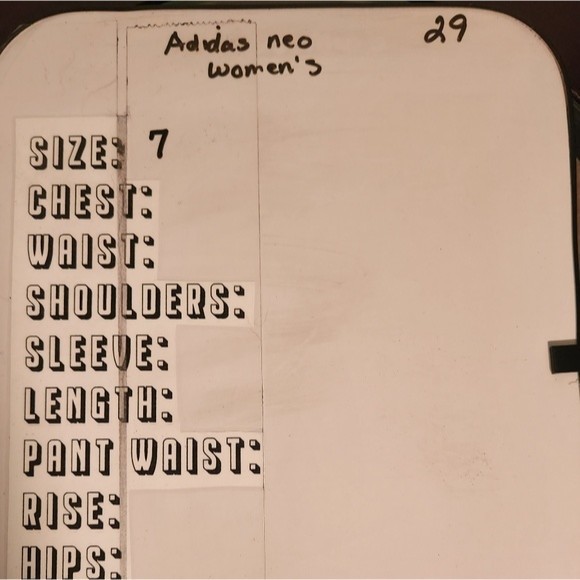 Adidas neo 29
women's
SIZE: 7
CHEST:
WAIST:
SHOULDERS:
SLEEVE:
LENGTH:
PANT WAIST:
RISE:
HIPS: